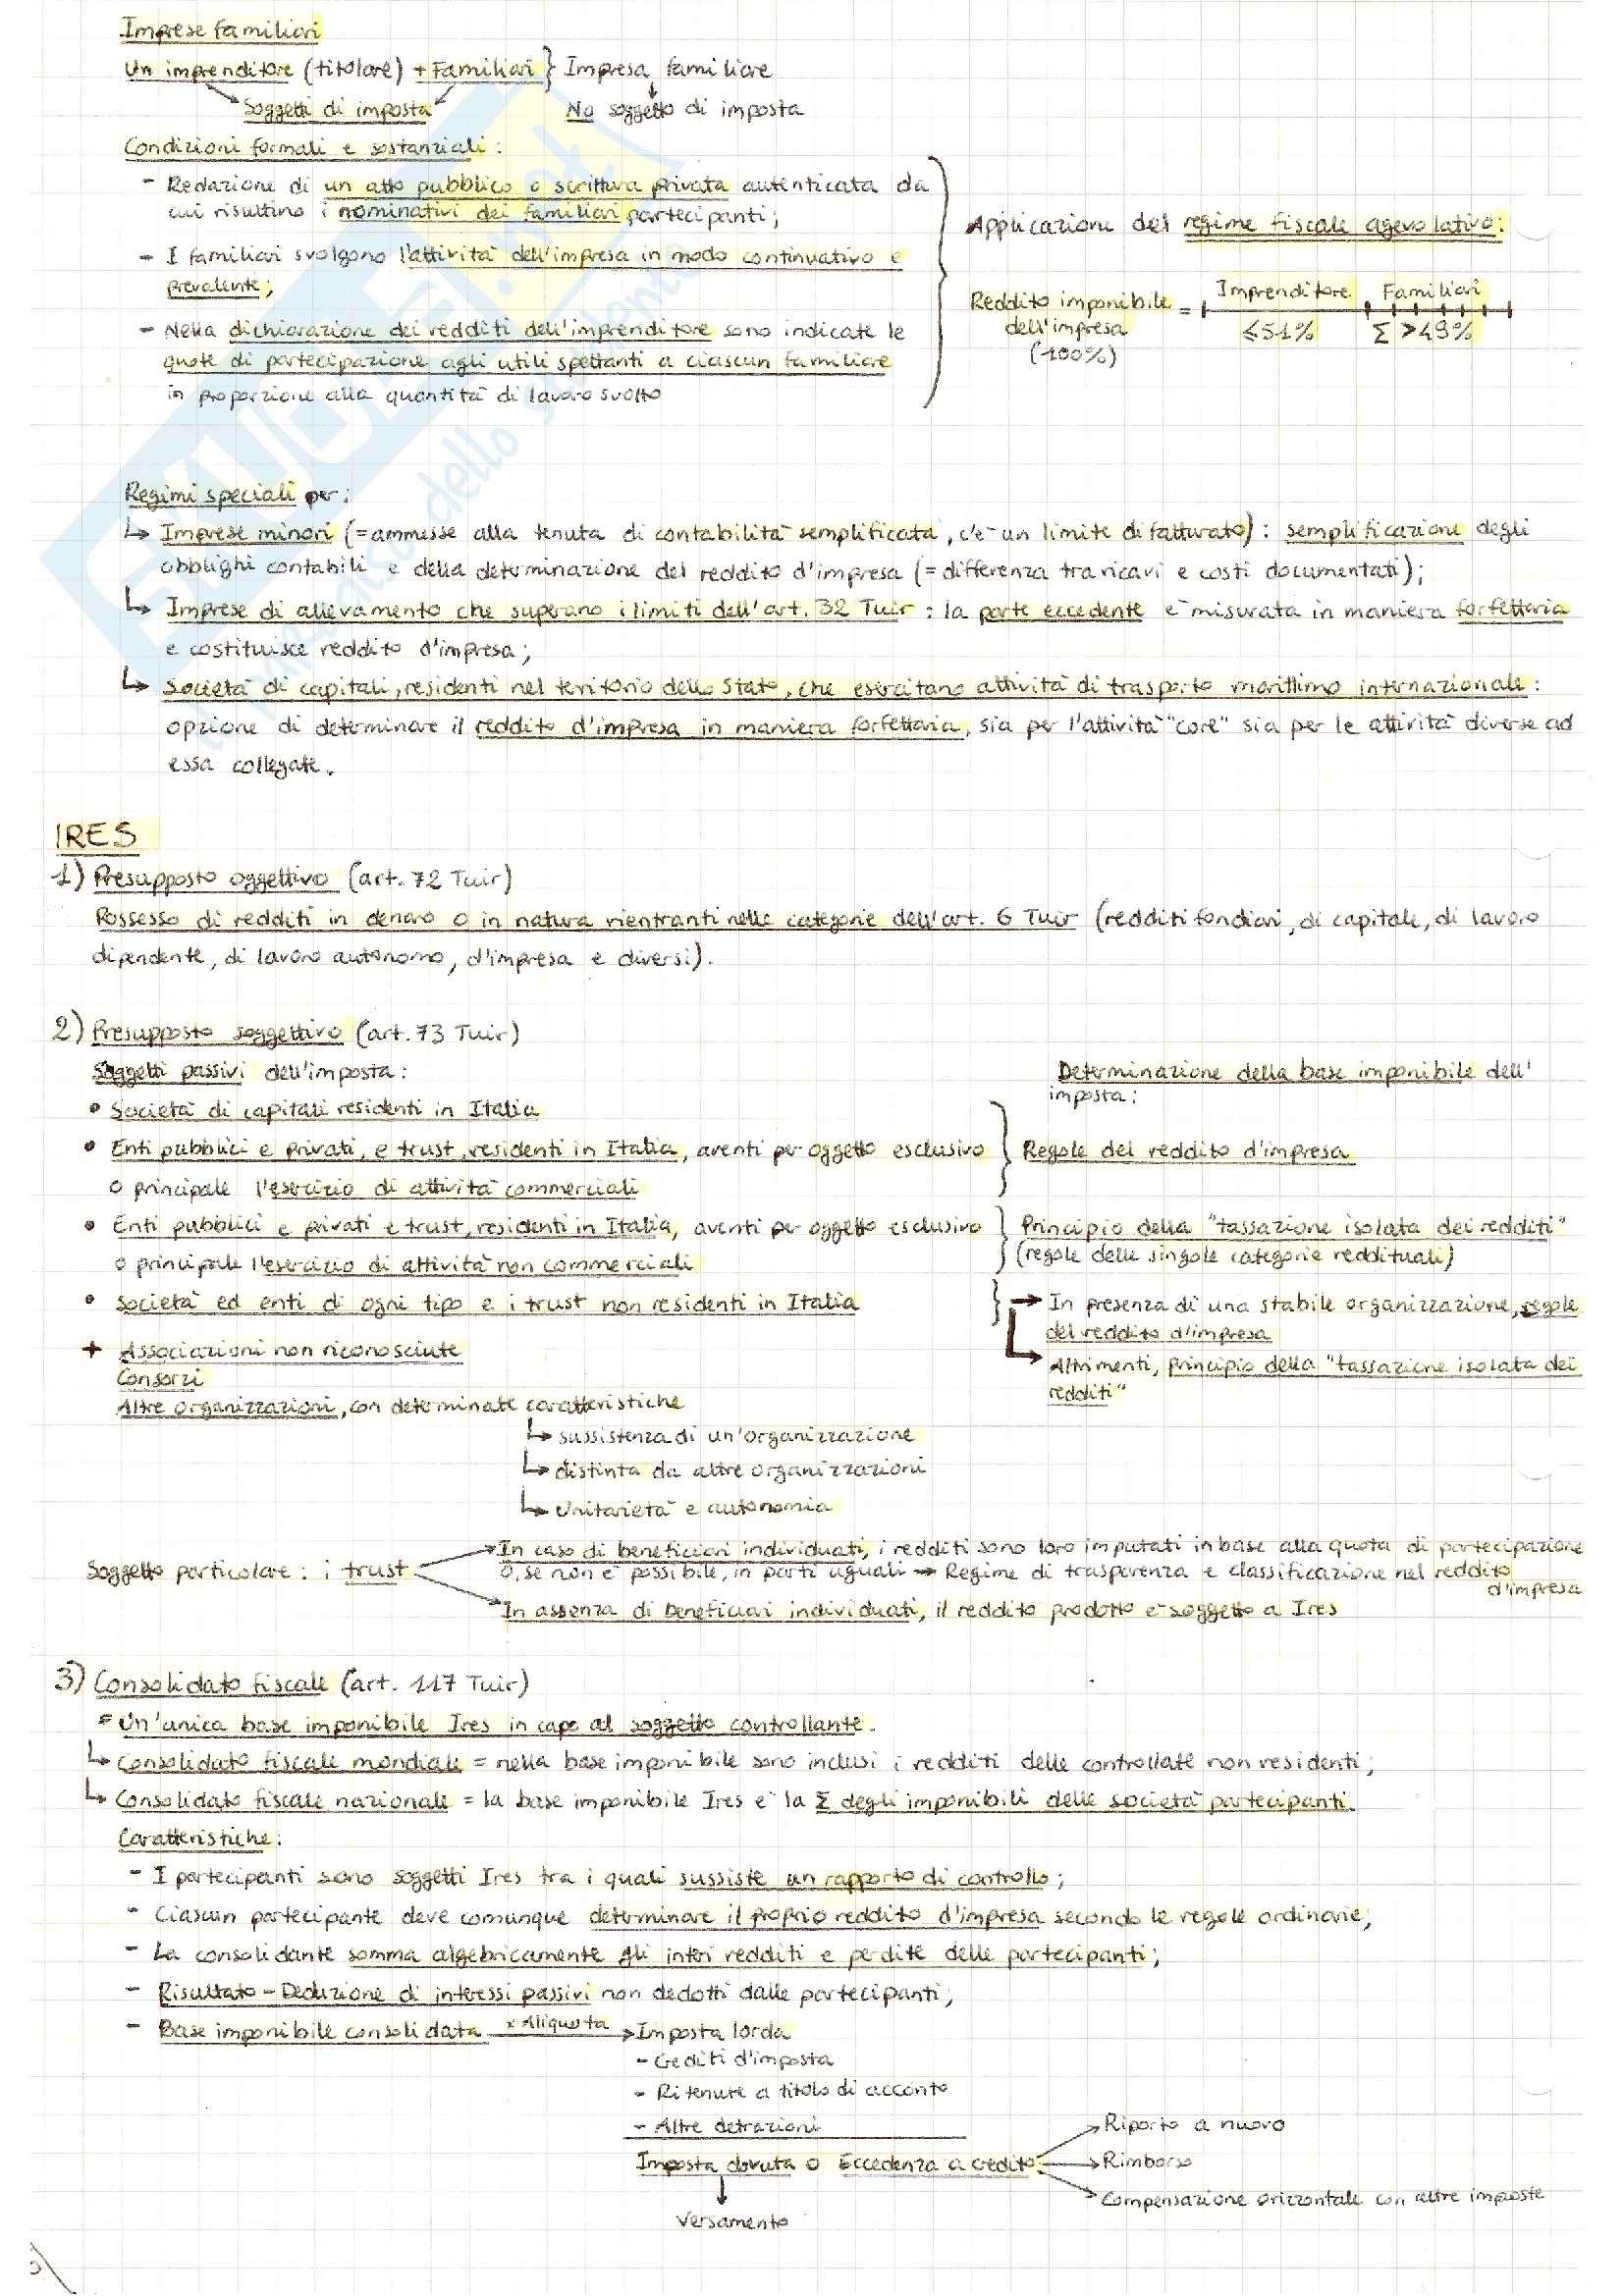 Imprese familiari
Un imprenditore (titolare) + Familiari } Impresa familiare
Soggetti di imposta
No soggetto di imposta
Condizioni formali e sostanziali:
- Redazione di un atto pubblico o scrittura privata autenticata da
cui risultino i nominativi dei familiari partecipanti;
- I familiari svolgono l'attività dell'impresa in modo continuativo e
prevalente;
- Nella dichiarazione dei redditi dell'imprenditore sono indicate le
quote di partecipazione agli utili spettanti a ciascun familiare
in proporzione alla quantità di lavoro svolto
Applicazione del regime fiscale agevolativo:
Reddito imponibile
dell'impresa
(100%)
=
Imprenditore Familiari
≤51% Σ >49%
Regimi speciali per:
↳ Imprese minori (= ammesse alla tenuta di contabilità semplificata, c'è un limite di fatturato): semplificazione degli
obblighi contabili e della determinazione del reddito d'impresa (= differenza tra ricavi e costi documentati);
↳ Imprese di allevamento che superano i limiti dell'art. 32 Tuir: la parte eccedente è misurata in maniera forfettaria
e costituisce reddito d'impresa;
↳ Società di capitali, residenti nel territorio dello Stato, che esercitano attività di trasporto marittimo internazionale:
opzione di determinare il reddito d'impresa in maniera forfettaria, sia per l'attività "core" sia per le attività diverse ad
essa collegate.
IRES
1) Presupposto oggettivo (art. 72 Tuir)
Possesso di redditi in denaro o in natura rientranti nelle categorie dell'art. 6 Tuir (redditi fondiari, di capitale, di lavoro
dipendente, di lavoro autonomo, d'impresa e diversi).
2) Presupposto soggettivo (art. 73 Tuir)
Soggetti passivi dell'imposta:
Determinazione della base imponibile dell'
imposta:
• Società di capitali residenti in Italia
• Enti pubblici e privati, e trust, residenti in Italia, aventi per oggetto esclusivo
o principale l'esercizio di attività commerciali
} Regole del reddito d'impresa
• Enti pubblici e privati e trust, residenti in Italia, aventi per oggetto esclusivo
o principale l'esercizio di attività non commerciali
} Principio della "tassazione isolata dei redditi"
(regole delle singole categorie reddituali)
• Società ed enti di ogni tipo e i trust non residenti in Italia
} → In presenza di una stabile organizzazione, regole
del reddito d'impresa
↳ Altrimenti, principio della "tassazione isolata dei
redditi"
+ Associazioni non riconosciute
Consorzi
Altre organizzazioni, con determinate caratteristiche
↳ sussistenza di un'organizzazione
↳ distinta da altre organizzazioni
↳ Unitarietà e autonomia
Soggetto particolare: i trust
In caso di beneficiari individuati, i redditi sono loro imputati in base alla quota di partecipazione
o, se non è possibile, in parti uguali → Regime di trasparenza e classificazione nel reddito
d'impresa
In assenza di beneficiari individuati, il reddito prodotto è soggetto a Ires
3) Consolidato fiscale (art. 117 Tuir)
= Un'unica base imponibile Ires in capo al soggetto controllante.
↳ Consolidato fiscale mondiale = nella base imponibile sono inclusi i redditi delle controllate non residenti;
↳ Consolidato fiscale nazionale = la base imponibile Ires è la Σ degli imponibili delle società partecipanti.
Caratteristiche:
- I partecipanti sono soggetti Ires tra i quali sussiste un rapporto di controllo;
- Ciascun partecipante deve comunque determinare il proprio reddito d'impresa secondo le regole ordinarie;
- La consolidante somma algebricamente gli interi redditi e perdite delle partecipanti;
- Risultato - Deduzione di interessi passivi non dedotti dalle partecipanti;
- Base imponibile consolidata x Aliquota → Imposta lorda
- Crediti d'imposta
- Ritenute a titolo di acconto
- Altre detrazioni
Imposta dovuta o Eccedenza a credito
→ Riporto a nuovo
→ Rimborso
→ Compensazione orizzontale con altre imposte
Versamento